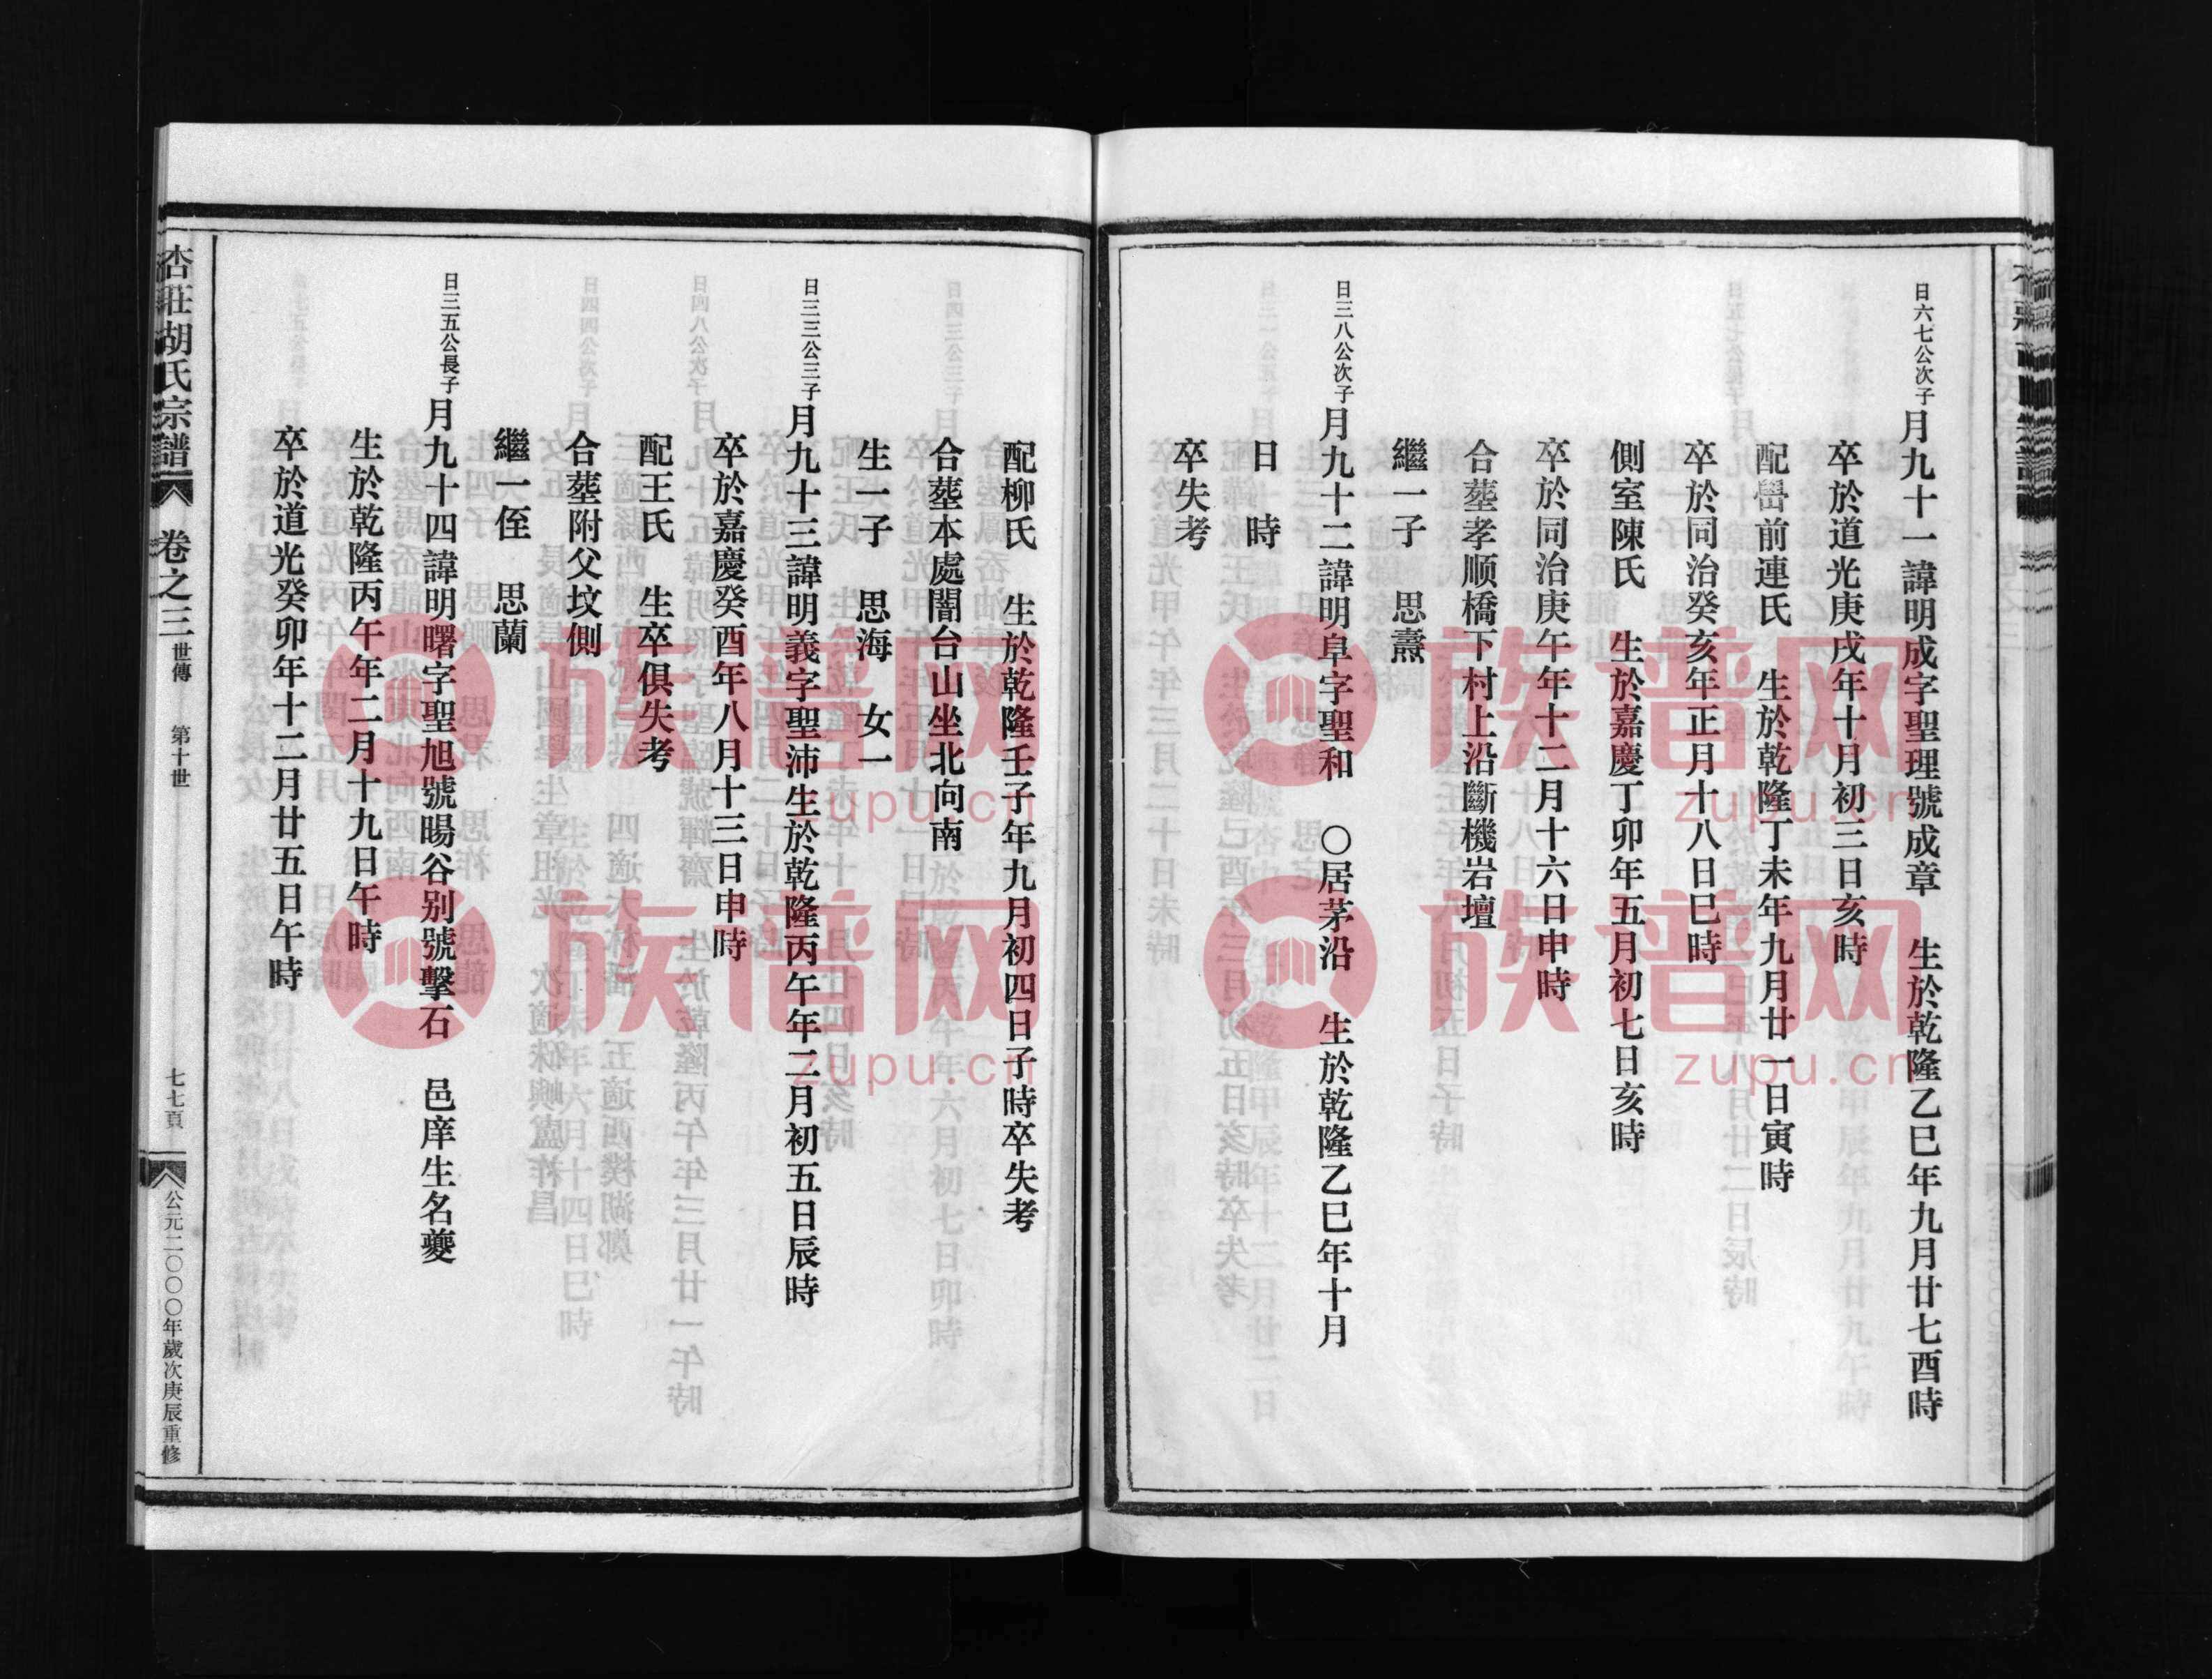 日六七公次子月九十一諱明成字聖理號成章　生於乾隆乙巳年九月廿七酉時
卒於道光庚戌年十月初三日亥時
配嶨前連氏　生於乾隆丁未年九月廿一日寅時
卒於同治癸亥年正月十八日巳時
側室陳氏　生於嘉慶丁卯年五月初七日亥時
卒於同治庚午年十二月十六日申時
合塟孝顺橋下村上沿斷機岩壇
繼一子　思燾
日三八公次子月九十二諱明阜字聖和　○居茅沿　生於乾隆乙巳年十月
日　時
卒失考
配柳氏　生於乾隆壬子年九月初四日子時卒失考
合塟本處闇台山坐北向南
生一子　思海　女一
日三三公三子月九十三諱明義字聖沛生於乾隆丙午年二月初五日辰時
卒於嘉慶癸酉年八月十三日申時
配王氏　生卒俱失考
合塟附父坟側
繼一侄　思蘭
日三五公長子月九十四諱明曙字聖旭號暘谷别號擊石　邑庠生名夔
生於乾隆丙午年二月十九日午時
卒於道光癸卯年十二月廿五日午時
杏莊胡氏宗譜　卷之三世傳　第十世　七七頁　公元二〇〇〇年歲次庚辰重修
族谱网
zupu.cn
族谱网
zupu.cn
族谱网
zupu.cn
族谱网
zupu.cn